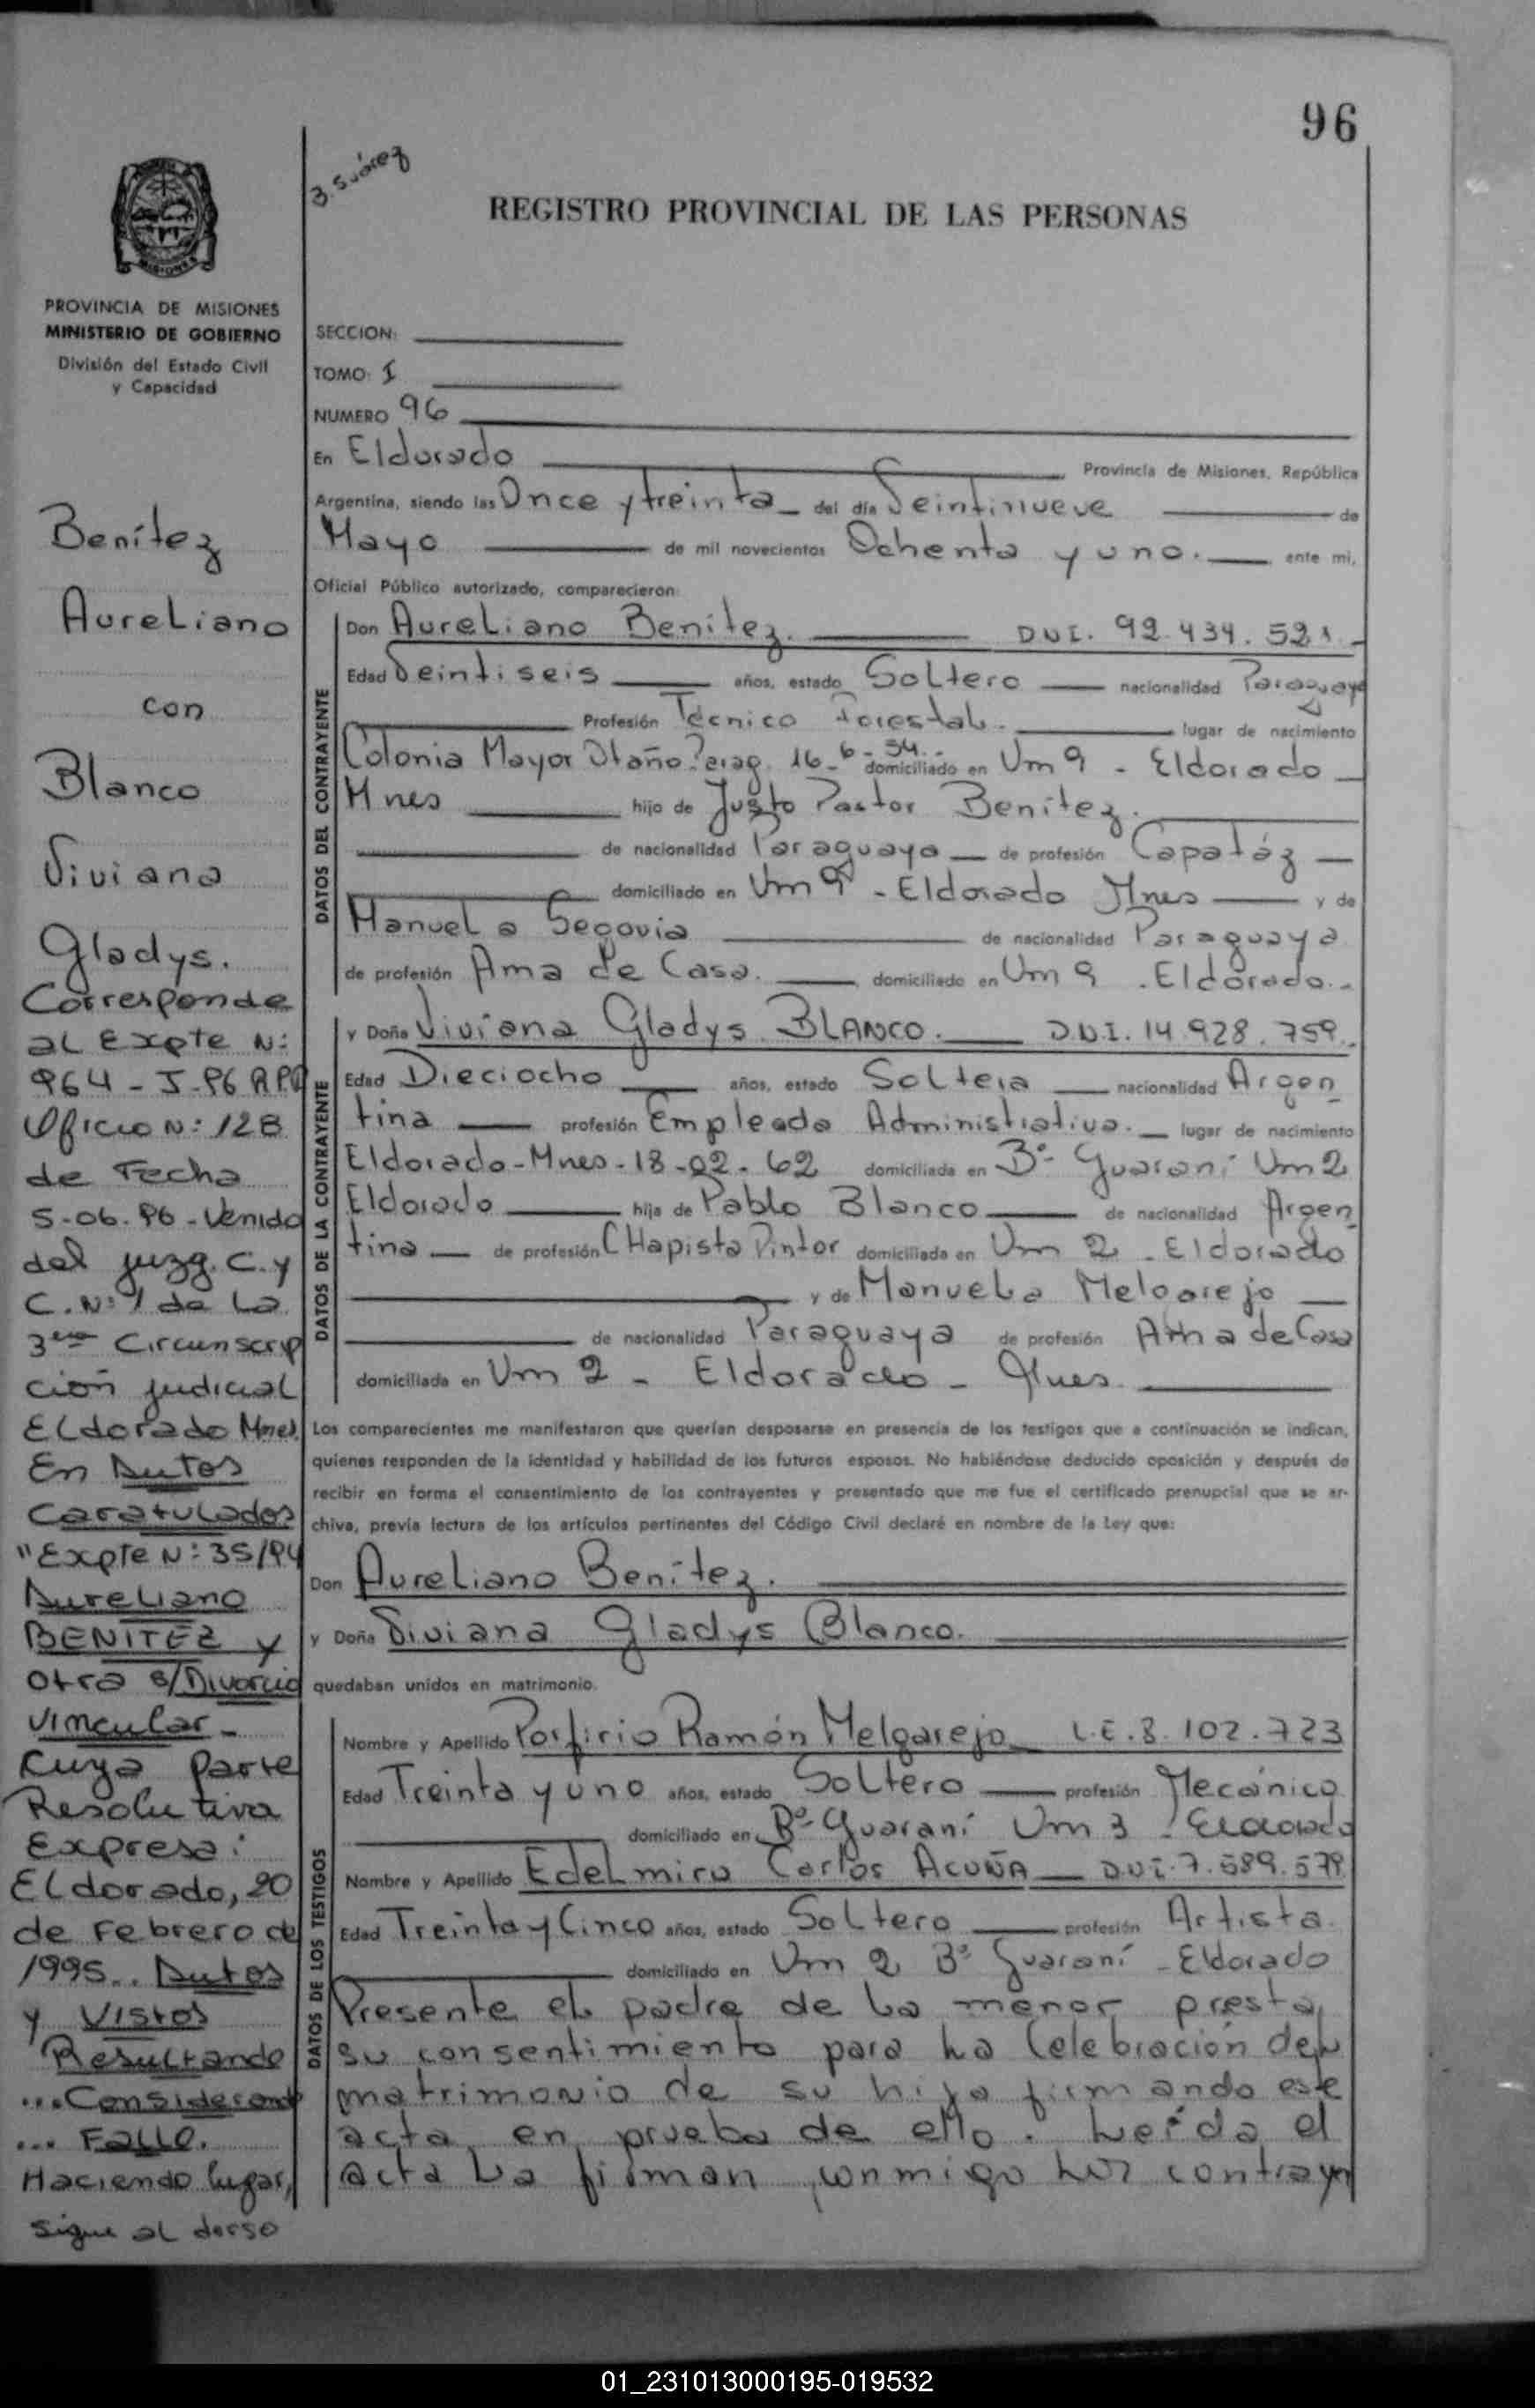 96
3. Suárez
REGISTRO PROVINCIAL DE LAS PERSONAS
MISIONES
PROVINCIA DE MISIONES
MINISTERIO DE GOBIERNO
División del Estado Civil
y Capacidad
Benítez
Aureliano
con
Blanco
Viviana
Gladys.
Corresponde
al Expte N:
964 - J - 96 R.P.P
Oficio N: 128
de Fecha
5-06-96 - Venido
del Juzg. C. y
C. Nº 1 de La
3era Circunscrip
ción judicial
Eldorado Mnes.
En Autos
Caratulados
"Expte N: 35/94
Aureliano
BENITEZ y
otra s/Divorcio
vincular -
Cuya parte
Resolutiva
Expresa:
Eldorado, 20
de Febrero de
1995.. Autos
y Vistos
Resultando
... Considerand
... Fallo.
Haciendo lugar,
sigue al dorso
SECCION:
TOMO: I
NUMERO 96
En Eldorado Provincia de Misiones, República
Argentina, siendo las Once y treinta del día Veintinueve de
Mayo de mil novecientos Ochenta y uno. ante mi,
Oficial Público autorizado, comparecieron:
DATOS DEL CONTRAYENTE
Don Aureliano Benítez. DNI. 92.434.521
Edad Veintiseis años, estado Soltero nacionalidad Paraguaya
Profesión Técnico Forestal. lugar de nacimiento
Colonia Mayor Otaño Parag. 16-6-54.. domiciliado en Um 9 - Eldorado
Mnes hijo de Justo Pastor Benítez.
de nacionalidad Paraguaya de profesión Capatáz
domiciliado en Um 9 - Eldorado Mnes y de
Manuela Segovia de nacionalidad Paraguaya
de profesión Ama de Casa. domiciliado en Um 9 . Eldorado..
DATOS DE LA CONTRAYENTE
y Doña Viviana Gladys BLANCO. D.N.I. 14.928.759.
Edad Dieciocho años, estado Soltera nacionalidad Argen
tina profesión Empleada Administrativa. lugar de nacimiento
Eldorado-Mnes-18-02-62 domiciliada en Bº Guaraní Um 2
Eldorado hija de Pablo Blanco de nacionalidad Argen
tina de profesión CHapista Pintor domiciliada en Um 2 - Eldorado
y de Manuela Melgarejo
de nacionalidad Paraguaya de profesión Ama de Casa
domiciliada en Um 2 - Eldorado - Mnes.
Los comparecientes me manifestaron que querían desposarse en presencia de los testigos que a continuación se indican,
quienes responden de la identidad y habilidad de los futuros esposos. No habiéndose deducido oposición y después de
recibir en forma el consentimiento de los contrayentes y presentado que me fue el certificado prenupcial que se ar-
chiva, previa lectura de los artículos pertinentes del Código Civil declaré en nombre de la Ley que:
Don Aureliano Benítez.
y Doña Viviana Gladys Blanco.
quedaban unidos en matrimonio.
DATOS DE LOS TESTIGOS
Nombre y Apellido Porfirio Ramón Melgarejo L.E. 8.102.723
Edad Treinta y uno años, estado Soltero profesión Mecánico
domiciliado en Bº Guaraní Um 3 - Eldorado
Nombre y Apellido Edelmiro Carlos ACUÑA D.N.I. 7.589.579
Edad Treinta y Cinco años, estado Soltero profesión Artista.
domiciliado en Um 2 Bº Guaraní - Eldorado
Presente el padre de la menor presta
su consentimiento para la Celebración del
matrimonio de su hija firmando este
acta, en prueba de ello. Leída el
acta La firman conmigo los contrayen
01_231013000195-019532